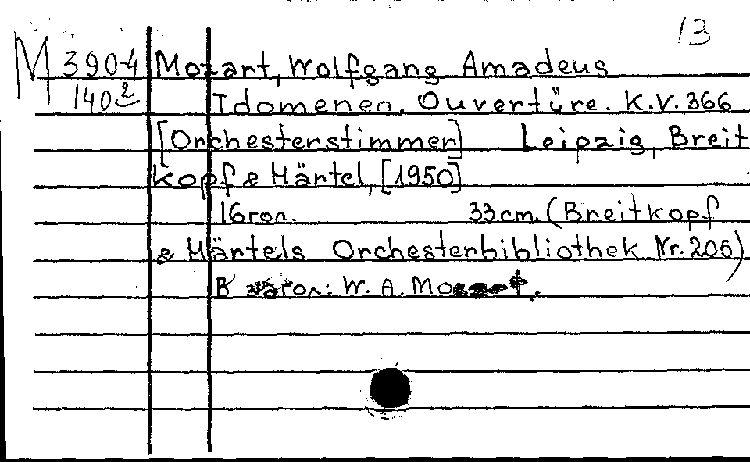 13
M 3904 Mozart, Wolfgang Amadeus
140 2 Idomeneo. Ouvertüre. K.V. 366
[Orchesterstimmen] Leipzig, Breit
kopf & Härtel, [1950]
16 гол. 33cm. (Breitkopf
& Härtels Orchesterbibliothek Nr. 206)
В загол: W. A. Mozart.